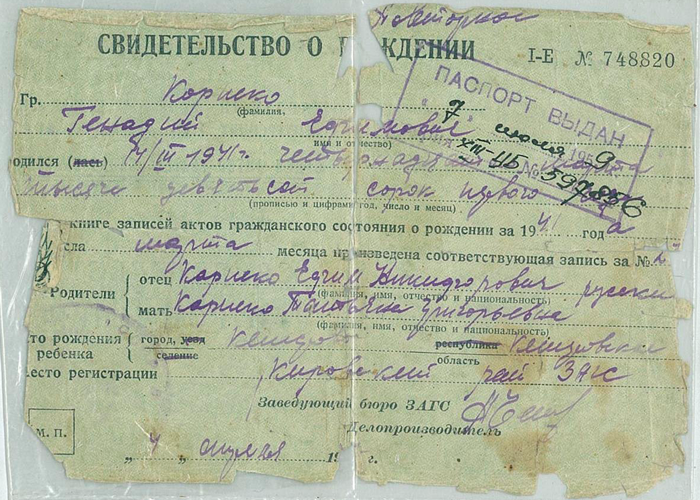 Повторное
СВИДЕТЕЛЬСТВО О РОЖДЕНИИ I-Е № 748820
ПАСПОРТ ВЫДАН
7 июля 1959
XIII-УБ № 597856
Гр. Корнеко
(фамилия,
Генадий Ефимович
имя и отчество)
одился (лась) 14/III 1941г. четырнадцатого марта
тысяча девятьсот сорок первого года
(прописью и цифрами год, число и месяц)
книге записей актов гражданского состояния о рождении за 1941 года
сла марта месяца произведена соответствующая запись за №
Родители
отец Корнеко Ефим Никифорович русский
(фамилия, имя, отчество и национальность)
мать Корнеко Татьяна Григорьевна
(фамилия, имя, отчество и национальность)
то рождения ребенка
город, уезд
селение
республика
область
есто регистрации Кировский рай ЗАГС
Заведующий бюро ЗАГС
Делопроизводитель
М. П.
„4" апреля 19 г.